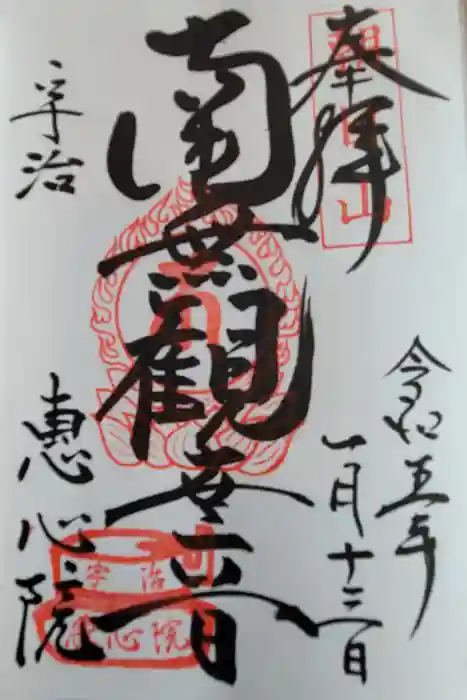 奉拝
朝日山
令和五年
一月十二日
南無観世音
宇治
恵心院
宇治
恵心院